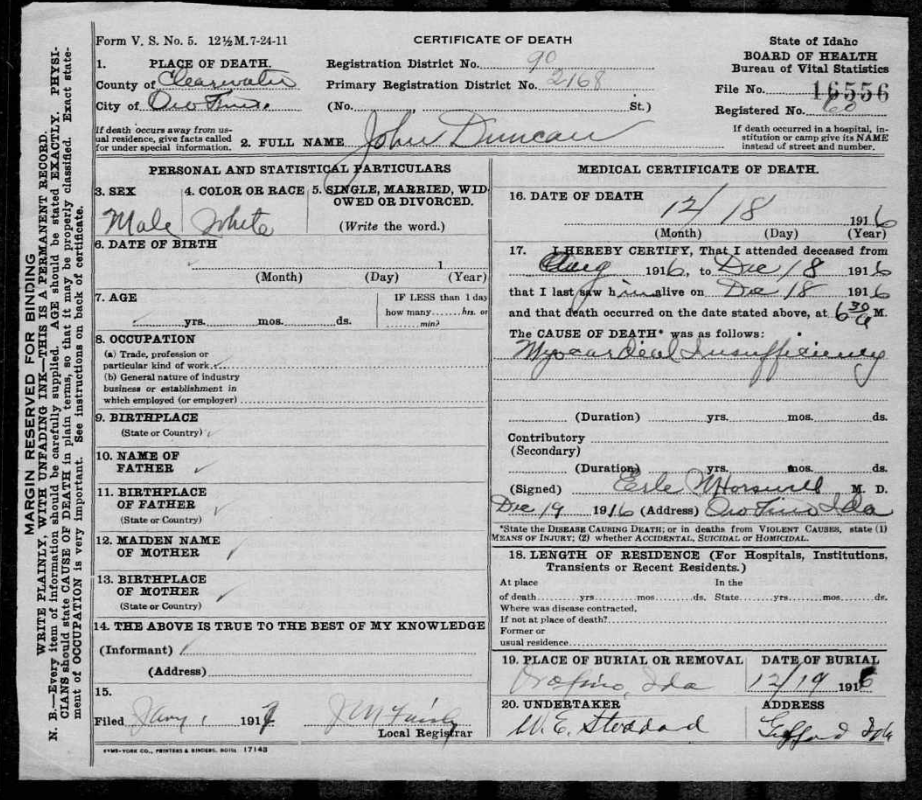 Form V. S. No. 5. 12½ M. 7-24-11
CERTIFICATE OF DEATH
State of Idaho
BOARD OF HEALTH
Bureau of Vital Statistics
File No. 16556
Registered No. 62
1. PLACE OF DEATH.
County of Clearwater
City of Oro Fino.
Registration District No. 90
Primary Registration District No. 2168
(No. St.)
If death occurs away from usual residence, give facts called for under special information.
2. FULL NAME John Duncan
If death occurred in a hospital, institution or camp give its NAME instead of street and number.
PERSONAL AND STATISTICAL PARTICULARS
3. SEX
Male
4. COLOR OR RACE
White
5. SINGLE, MARRIED, WIDOWED OR DIVORCED.
(Write the word.)
6. DATE OF BIRTH
1
(Month) (Day) (Year)
7. AGE
yrs. mos. ds.
IF LESS than 1 day
how many hrs. or
min?
8. OCCUPATION
(a) Trade, profession or
particular kind of work
(b) General nature of industry
business or establishment in
which employed (or employer)
9. BIRTHPLACE
(State or Country)
10. NAME OF
FATHER
11. BIRTHPLACE
OF FATHER
(State or Country)
12. MAIDEN NAME
OF MOTHER
13. BIRTHPLACE
OF MOTHER
(State or Country)
14. THE ABOVE IS TRUE TO THE BEST OF MY KNOWLEDGE
(Informant)
(Address)
15.
Filed Jany 1 1917
Local Registrar
SYMS-YORK CO., PRINTERS & BINDERS, BOISE 17143
MEDICAL CERTIFICATE OF DEATH.
16. DATE OF DEATH
12/ 18 1916
(Month) (Day) (Year)
17. I HEREBY CERTIFY, That I attended deceased from
Aug 1916, to Dec 18 1916
that I last saw him alive on Dec 18 1916
and that death occurred on the date stated above, at 6 30 a M.
The CAUSE OF DEATH* was as follows:
Myocardial Insufficiency
(Duration) yrs. mos. ds.
Contributory
(Secondary)
(Duration) yrs. mos. ds.
(Signed) Erle W Horswill M. D.
Dec 19 1916 (Address) Oro Fino Ida
*State the DISEASE CAUSING DEATH; or in deaths from VIOLENT CAUSES, state (1)
MEANS OF INJURY; (2) whether ACCIDENTAL, SUICIDAL OR HOMICIDAL.
18. LENGTH OF RESIDENCE (For Hospitals, Institutions,
Transients or Recent Residents.)
At place In the
of death yrs. mos. ds. State yrs. mos. ds.
Where was disease contracted,
If not at place of death?
Former or
usual residence
19. PLACE OF BURIAL OR REMOVAL
Orofino, Ida
DATE OF BURIAL
12/19 1916
20. UNDERTAKER
W. E. Stoddard
ADDRESS
Gifford Ida
MARGIN RESERVED FOR BINDING
WRITE PLAINLY, WITH UNFADING INK—THIS IS A PERMANENT RECORD.
N. B.—Every item of information should be carefully supplied. AGE should be stated EXACTLY. PHYSI-
CIANS should state CAUSE OF DEATH in plain terms, so that it may be properly classified. Exact state-
ment of OCCUPATION is very important. See instructions on back of certificate.